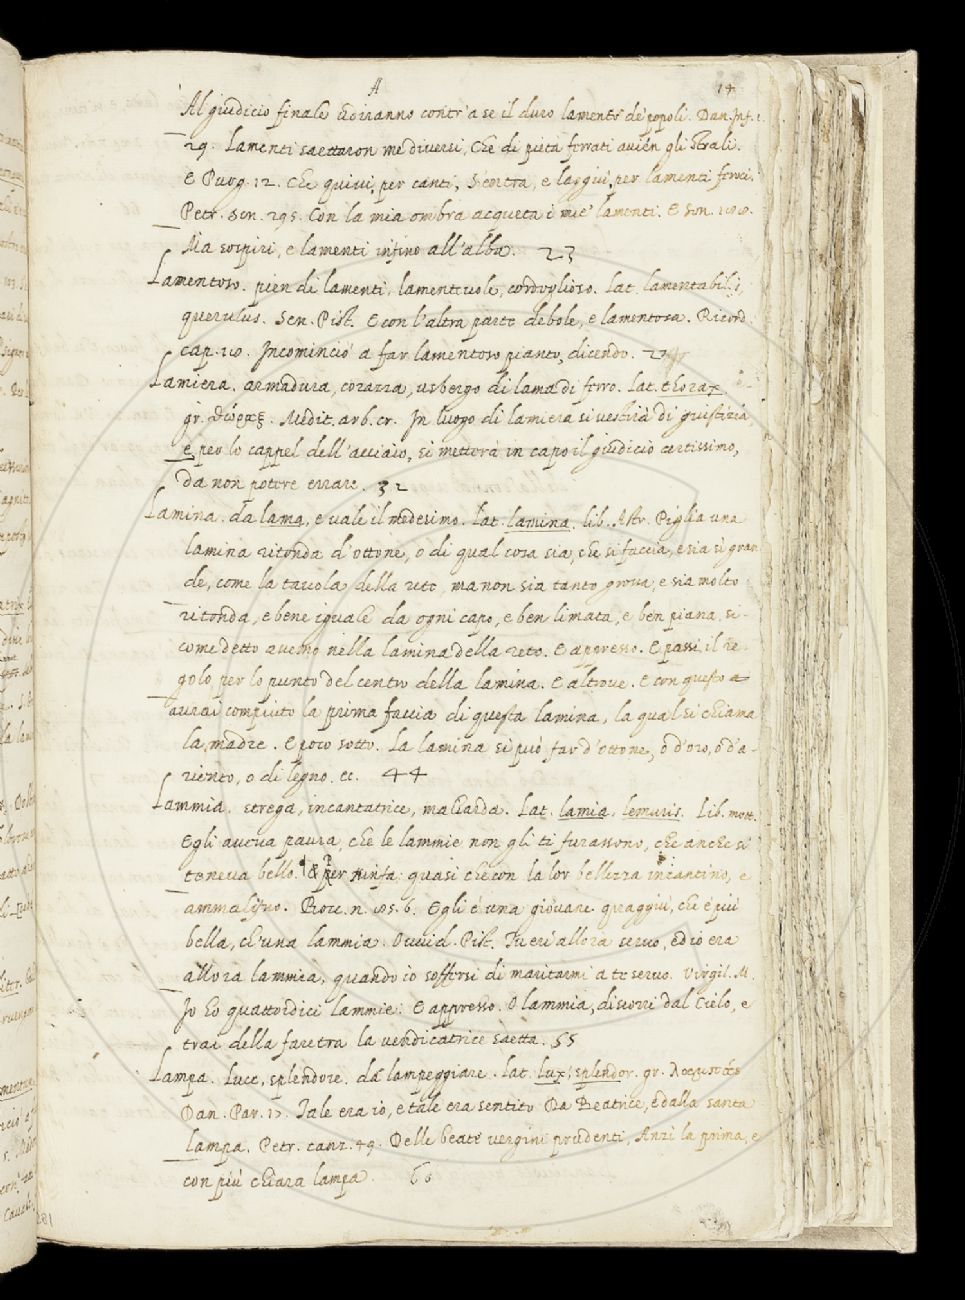 A 14
Al giudicio finale udiranno contr'a se il duro lamento de' popoli. Dan. Inf.
29. Lamenti saettaron me diversi, Che di pietà ferrati avièn gli Strali.
E Purg. 12. Che quivi per canti, S'entra, e laggiù per lamenti feroci.
Petr. Son. 295. Con la mia ombra acqueta i mie' lamenti. E Son.
Ma sospiri, e lamenti infino all'alba. 23
Lamentoso. pien di lamenti, lamentevole, cordoglioso. Lat. lamentabilis,
querulus. Sen. Pist. E con l'altra parte debole, e lamentosa. Ricord.
cap. Incominciò a far lamentoso pianto, dicendo. 27
Lamiera. armadura, corazza, usbergo di lama di ferro. Lat. thorax,
gr. θώραξ. Medit. arb. cr. In luogo di lamiera si vestirà di giustizia,
e per lo cappel dell'acciaio, si metterà in capo il giudicio certissimo,
da non potere errare. 32
Lamina. da lama, e vale il medesimo. Lat. lamina. lib. Astr. Piglia una
lamina ritonda d'ottone, o di qual cosa sia, che si faccia, e sia sì gran
de, come la tavola della rete, ma non sia tanto grossa, e sia molto
ritonda, e bene iguale da ogni capo, e ben limata, e ben piana, si-
come detto avemo nella lamina della rete. E appresso. E passi il re-
golo per lo punto del centro della lamina. E altrove. E con questo
aurai compiuto la prima faccia di questa lamina, la qual si chiama
la madre. E poco sotto. La lamina si può far d'ottone, o d'oro, o d'a-
riento, o di legno. ec. 44
Lammia. strega, incantatrice, maliarda. Lat. lamia, lemuris. Lib. mott.
Egli aveva paura, che le lammie non gli ti furassono, che anche si
teneva bello. per ninfa: quasi che con la lor bellezza incantino, e
ammalino. Bocc. n. 85. 6. Egli è una giovane quaggiù, che è più
bella, ch'una lammia. Ovvid. Pist. Tu eri allora servo, ed io era
allora lammia, quando io soffersi di maritarmi a te servo. Virgil. M.
Io ho quattordici lammie: E appresso. O lammia, discorri dal Cielo, e
trai della faretra la vendicatrice saetta. 55
Lampa. Luce, splendore. da lampeggiare. Lat. lux, splendor. gr.
Dan. Par. 17. Tale era io, e tale era sentito Da Beatrice, e dalla santa
lampa. Petr. canz. 49. Delle beate vergini prudenti, Anzi la prima, e
con più chiara lampa.